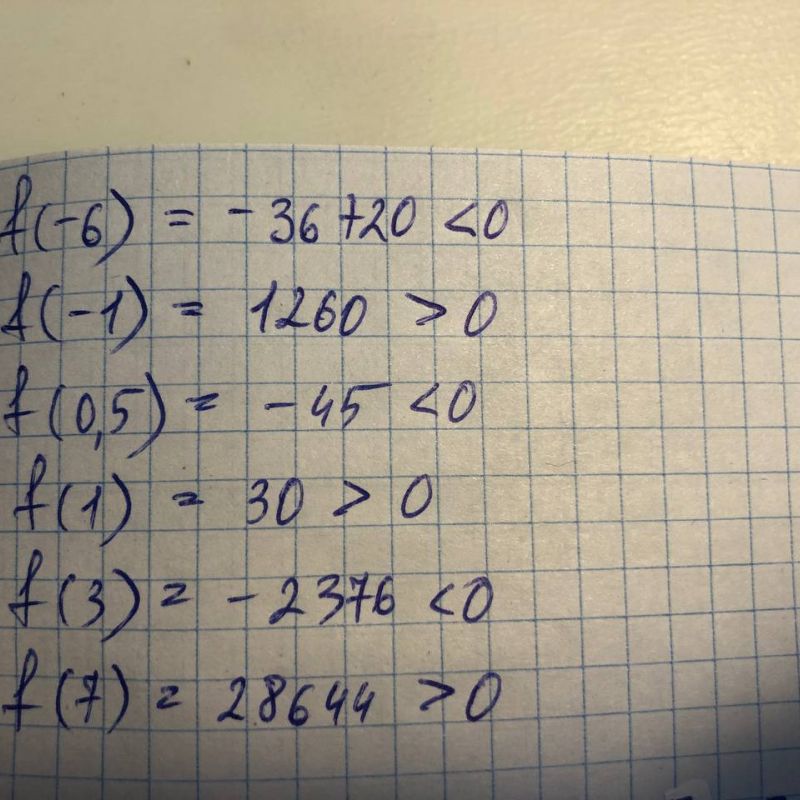 f(-6) = -36720 <0
f(-1) = 1260 > 0
f(0,5) = -45 <0
f(1) = 30 > 0
f(3) = -2376 <0
f(7) = 28644 >0